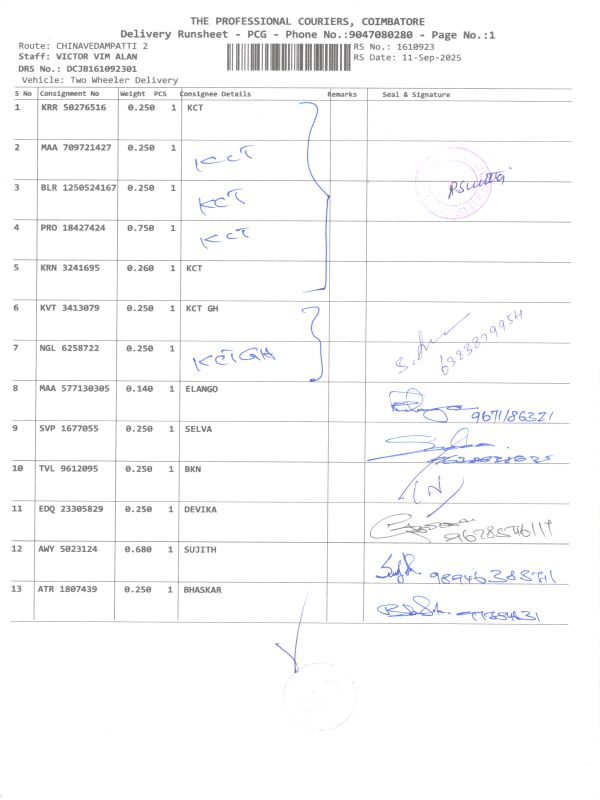 THE PROFESSIONAL COURIERS, COIMBATORE
Delivery Runsheet - PCG - Phone No.:9047080280 - Page No.:1
Route: CHINAVEDAMPATTI 2
RS No.: 1610923
Staff: VICTOR VIM ALAN
RS Date: 11-Sep-2025
DRS No.: DCJB161092301
Vehicle: Two Wheeler Delivery
S No Consignment No Weight PCS Consignee Details Remarks Seal & Signature
1 KRR 50276516 0.250 1 KCT
2 MAA 709721427 0.250 1 KCT
3 BLR 1250524167 0.250 1 KCT
4 PRO 18427424 0.750 1 KCT
5 KRN 3241695 0.260 1 KCT
6 KVT 3413079 0.250 1 KCT GH 6383879954
7 NGL 6258722 0.250 1 KCTGH
8 MAA 577130305 0.140 1 ELANGO
9 SVP 1677055 0.250 1 SELVA
10 TVL 9612095 0.250 1 BKN
11 EDQ 23305829 0.250 1 DEVIKA
12 AWY 5023124 0.680 1 SUJITH
13 ATR 1807439 0.250 1 BHASKAR